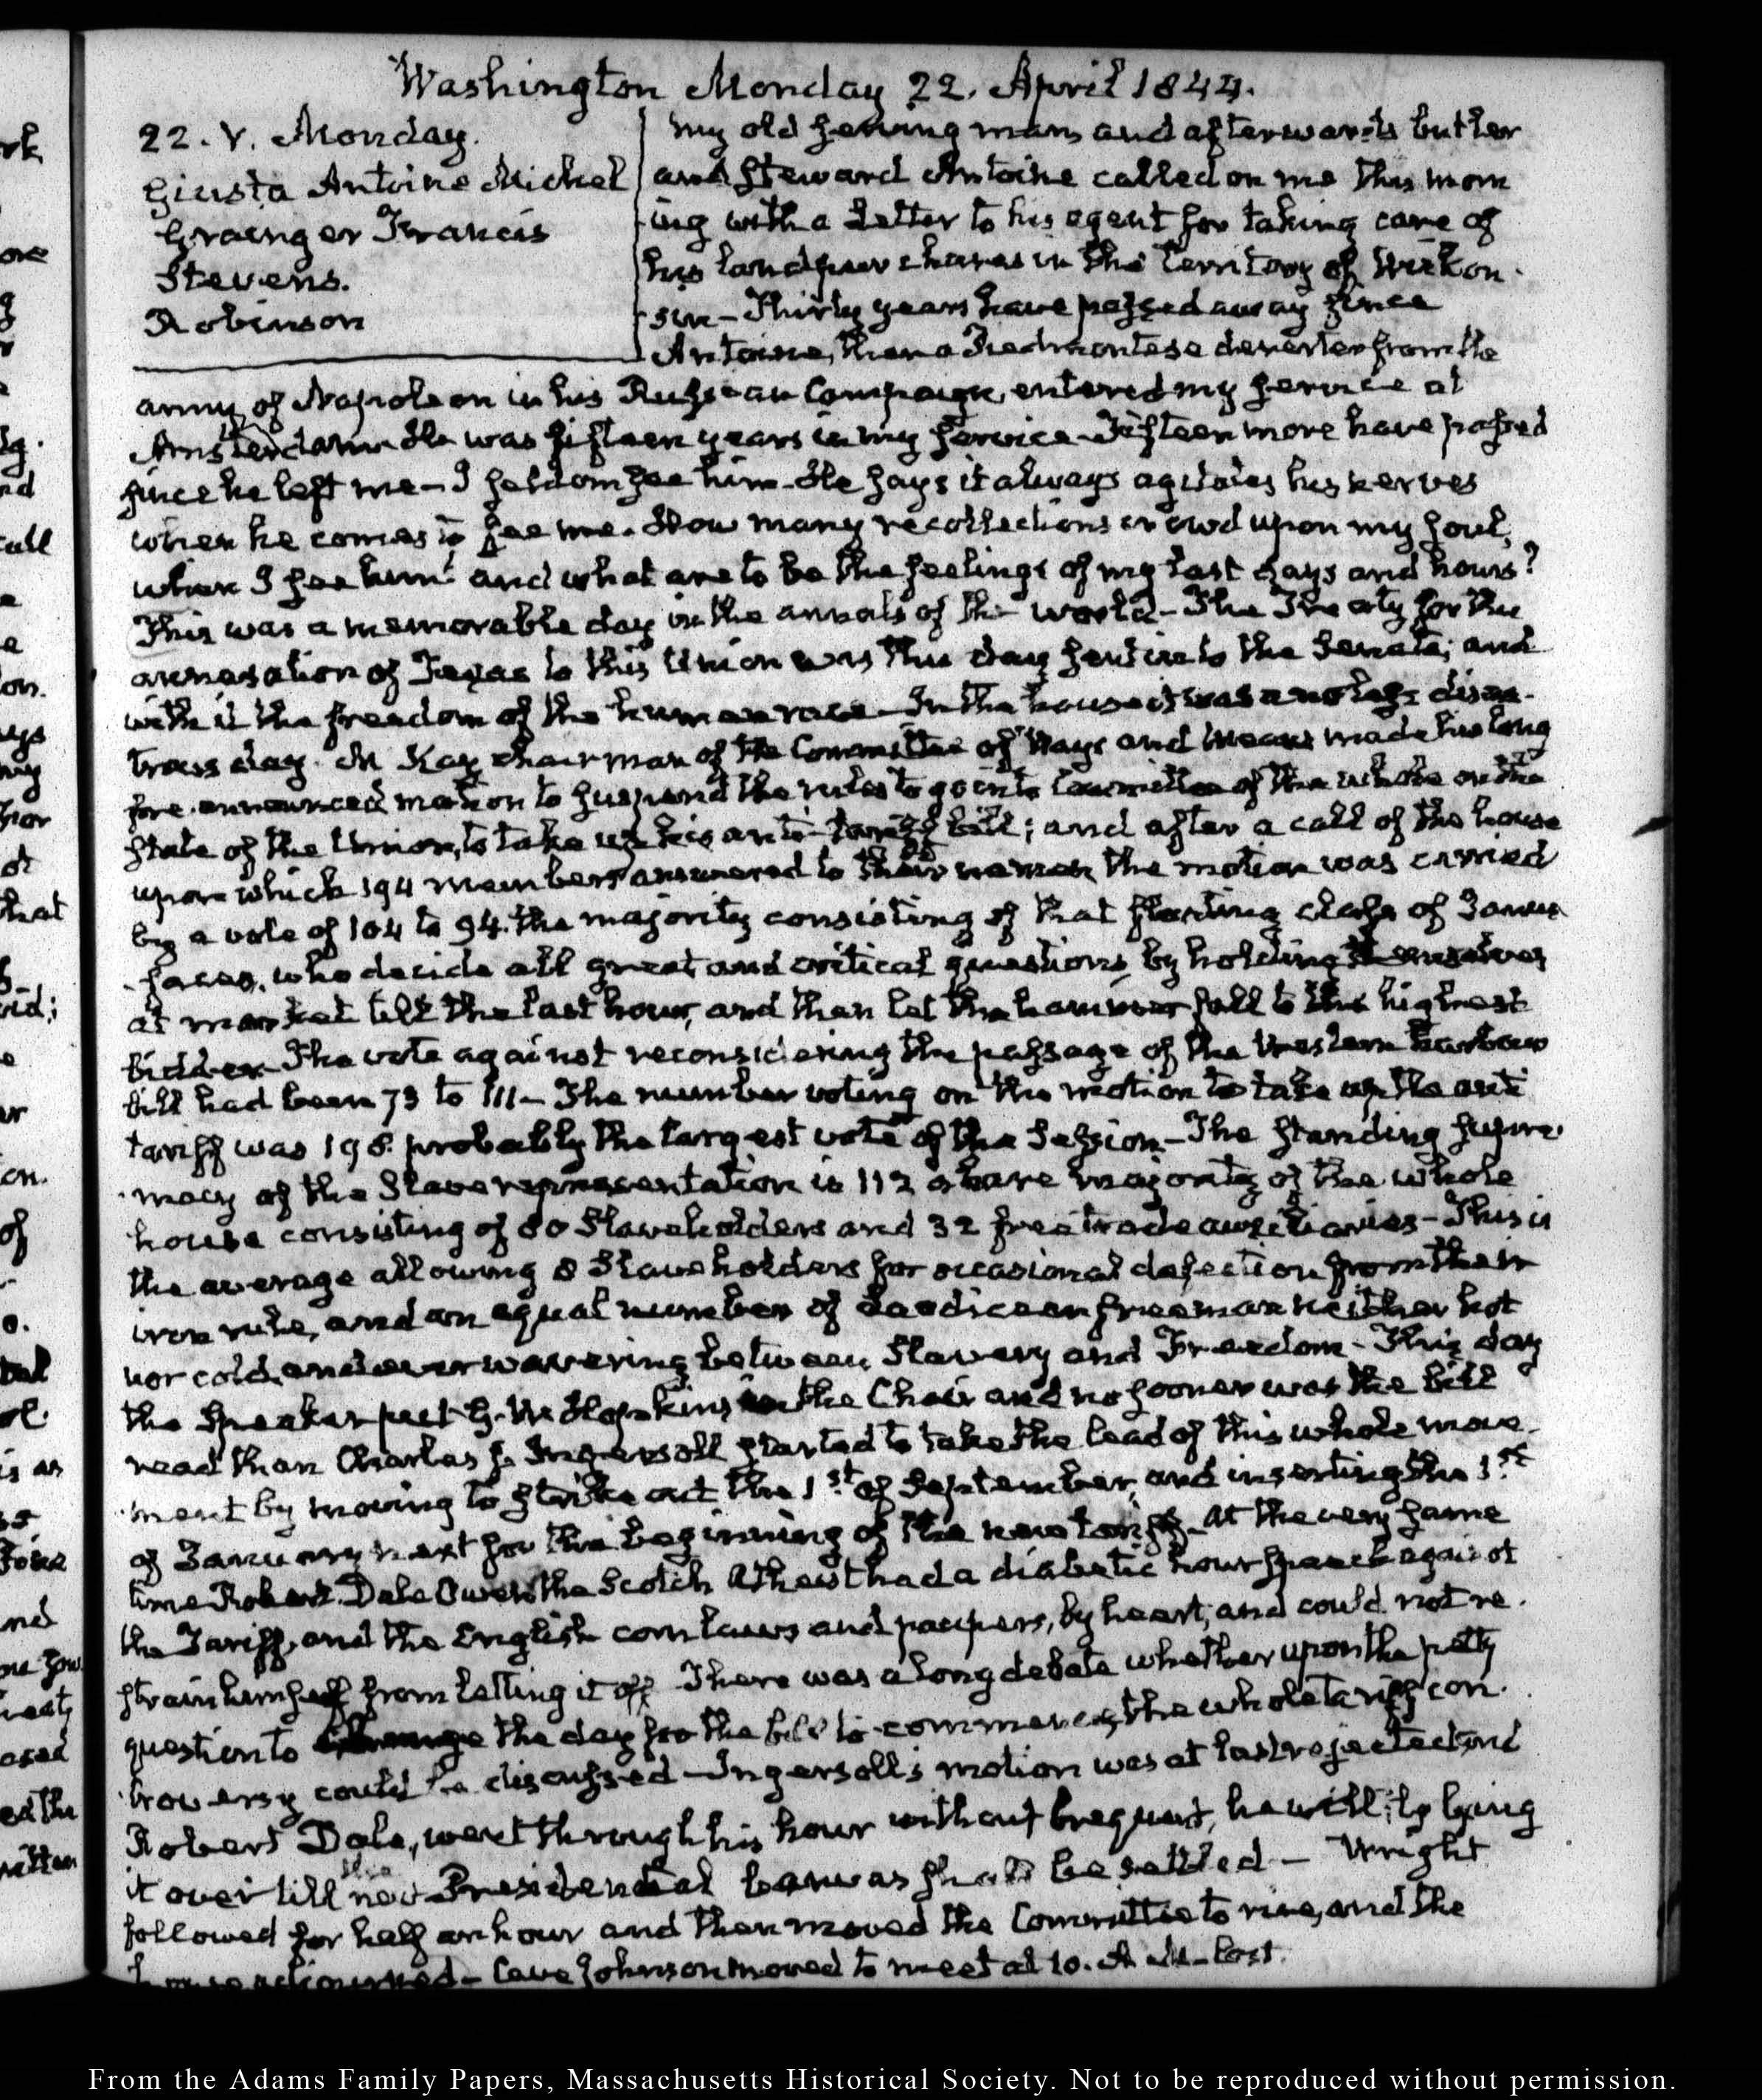 Washington Monday 22. April 1844.
22. V. Monday.
Giusta Antoine Michel
Granger Francis
Stevens.
Robinson
My old serving man, and afterwards butler
and Steward Antoine called on me this morn
ing with a Letter to his agent for taking care of
his land purchases in the Territory of Wiskon-
sin - Thirty years have passed away since
Antoine, then a Piedmontese deserter from the
army of Napoleon in his Russian Campaign, entered my service at
Amsterdam. He was fifteen years in my service - Fifteen more have passed
since he left me - I seldom see him - He says it always agitates his nerves
when he comes to see me. How many recollections crowd upon my soul,
when I see him! and what are to be the feelings of my last days and hours?
This was a memorable day in the annals of the world - The Treaty for the
annexation of Texas to this Union was this day sent in to the Senate; and
with it the freedom of the human race - In the house it was a not less disas-
trous day. Mr Kay chairman of the Committee of Ways and Means made his long
fore-announced motion to suspend the rules to go into Committee of the whole on the
State of the Union, to take up his anti-tariff bill; and after a call of the house
upon which 194 members answered to their names, the motion was carried
by a vote of 104 to 94. the majority consisting of that floating class of Janus
-faces, who decide all great and critical questions, by holding themselves
at market till the last hour, and then let the hammer fall to the highest
bidder - The vote against reconsidering the passage of the Western harbour
bill had been 73 to 111 - The number voting on the motion to take up the anti
tariff was 198. probably the largest vote of the Session - The standing supre
-macy of the Slave representation is 112 a bare majority of the whole
house consisting of 80 Slaveholders and 32 free trade auxiliaries - This is
the average allowing 8 Slaveholders for occasional defection from their
iron rule, and an equal number of Laodicean freemen neither hot
nor cold, and ever wavering between Slavery and Freedom - This day
the Speaker put G. W. Hopkins in the Chair and no sooner was the bill
read than Charles J. Ingersoll started to take the lead of this whole move-
-ment by moving to strike out the 1st. of September, and inserting the 1st
of January next for the beginning of the new tariff - At the very same
time Robert Dale Owen the Scotch Atheist had a diabetic hour speech against
the Tariff, and the English corn laws and paupers, by heart, and could not re-
strain himself from letting it off There was a long debate whether upon the petty
question to change the day for the bill to commence, the whole tariff con-
-troversy could be discussed - Ingersoll's motion was at last rejected and
Robert Dale, went through his hour without
it over till the new Presidential canvas shall be settled - Wright
followed for half an hour and then moved the Committee to rise, and the
house adjourned - Cave Johnson moved to meet at 10. A. M. - lost.
From the Adams Family Papers, Massachusetts Historical Society. Not to be reproduced without permission.